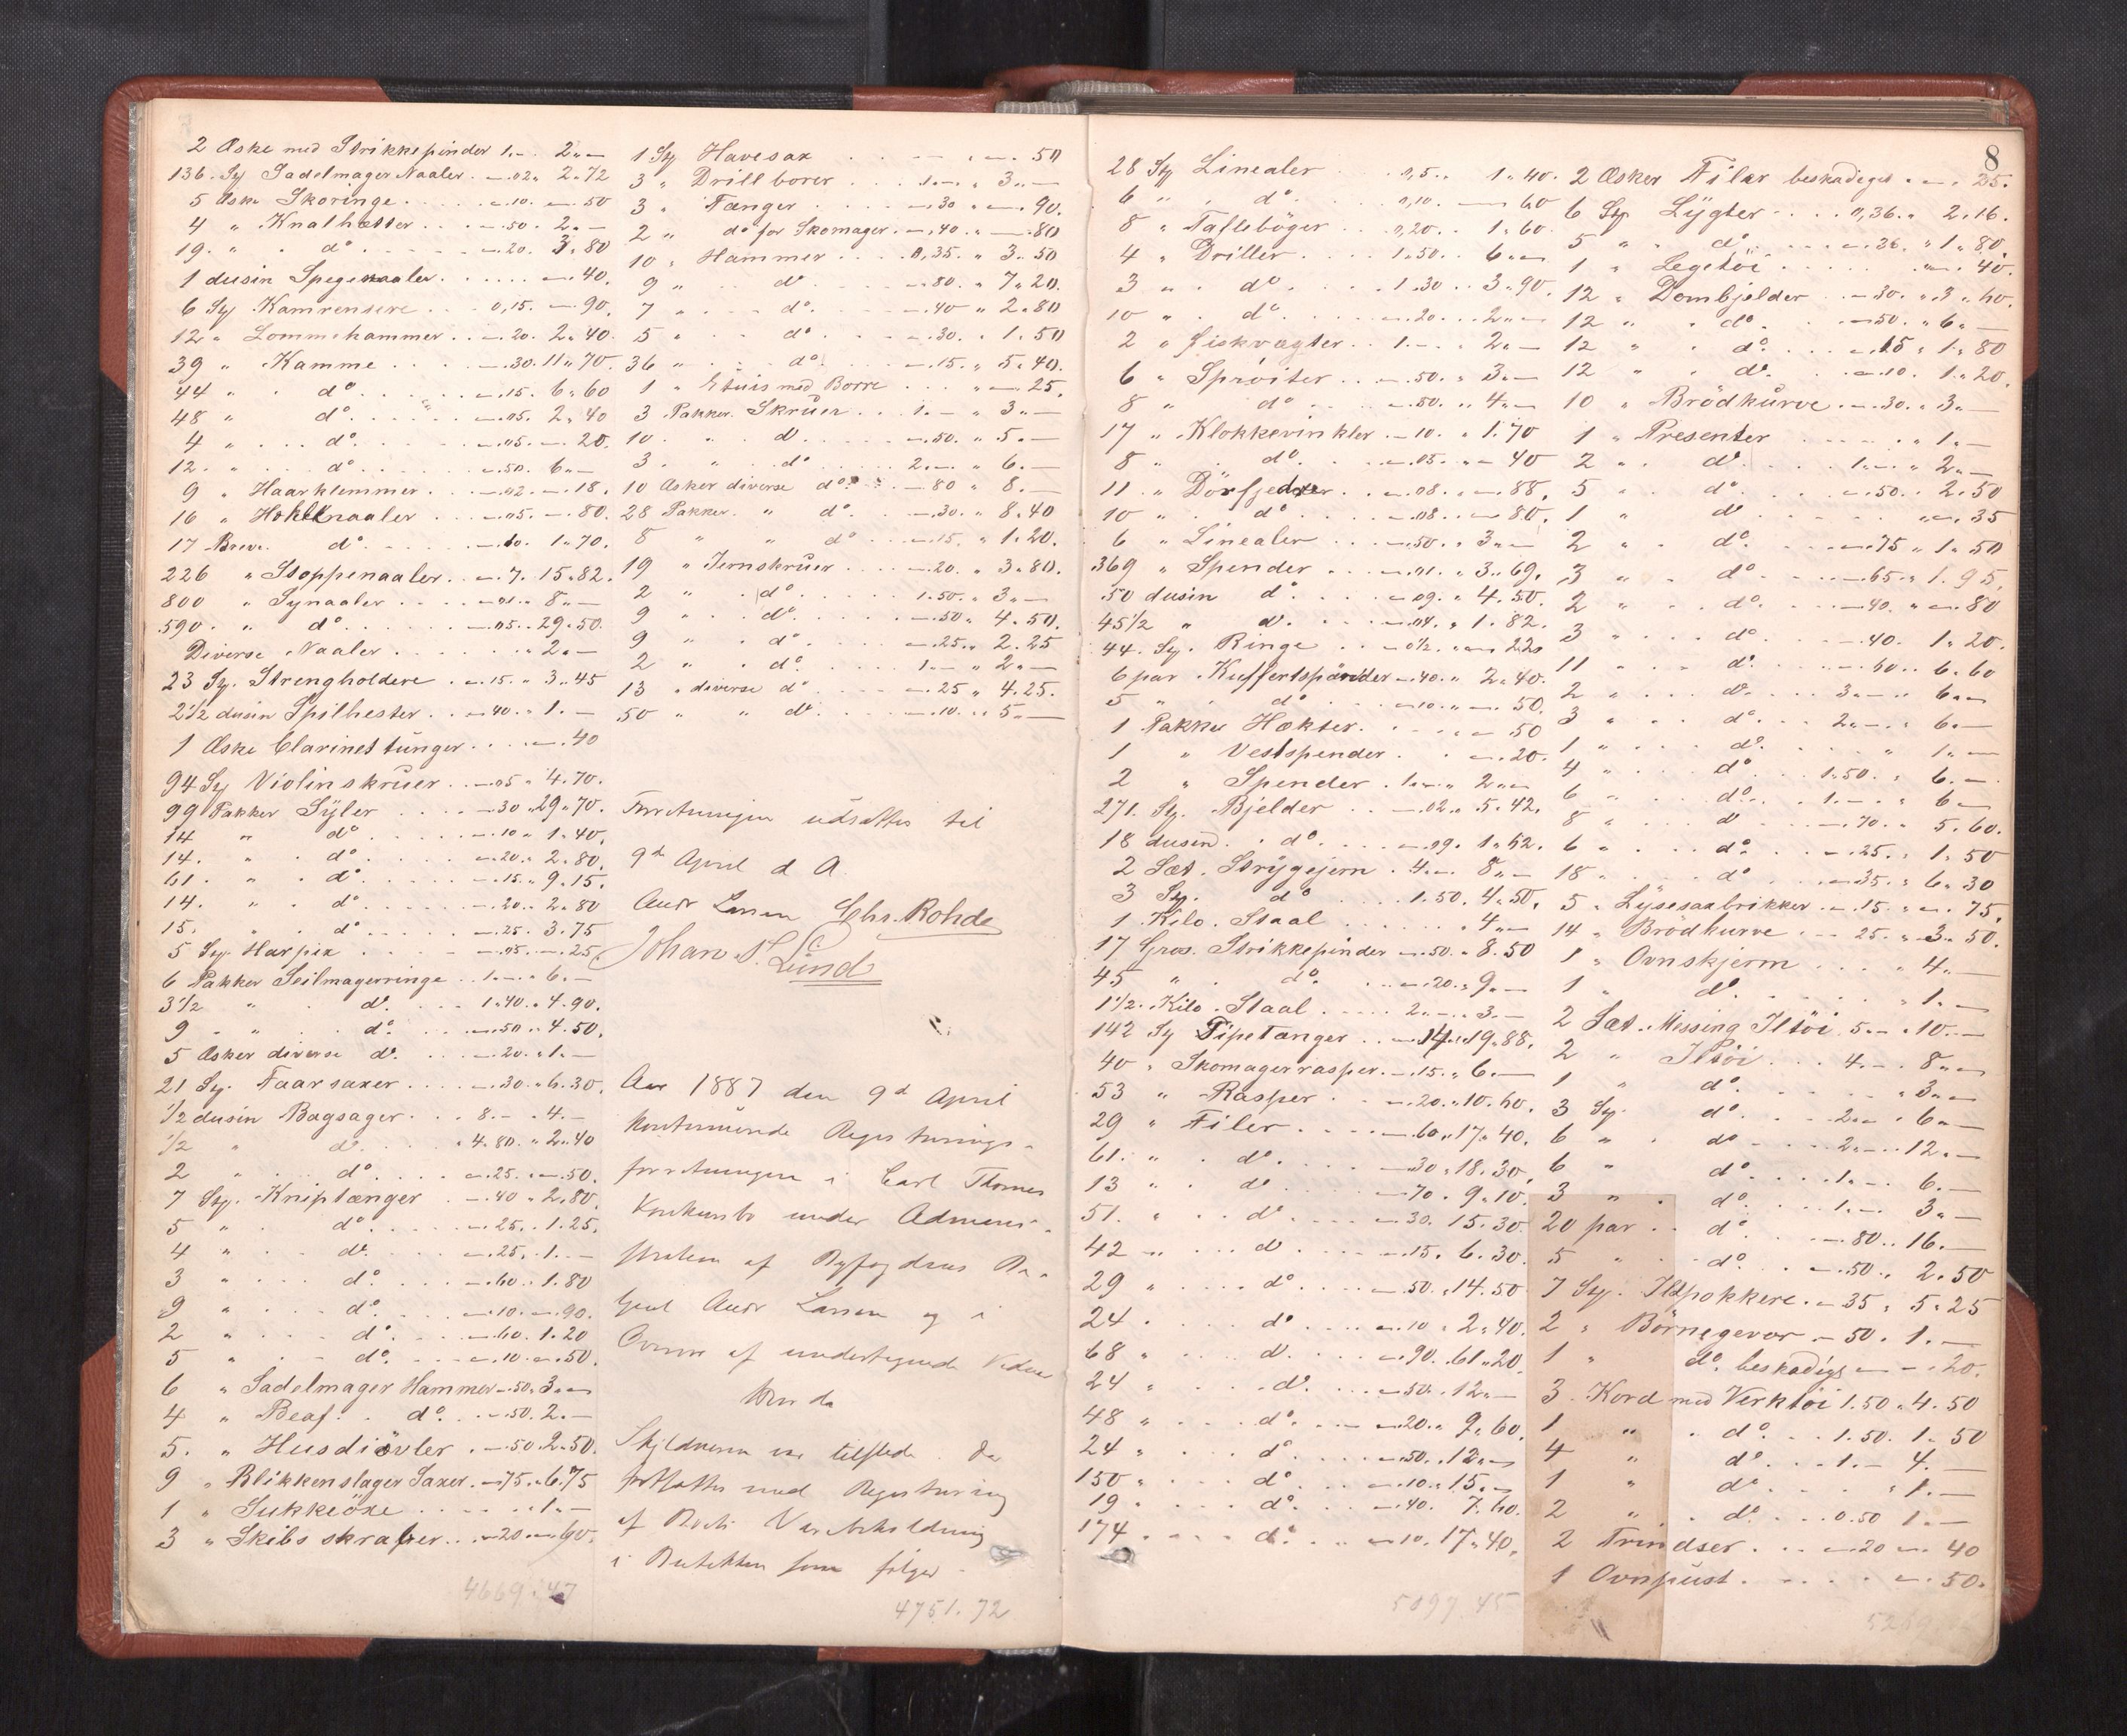 2 Æske med Strikkepinder 1.— 2.—
136. St Sadelmager Naaler . —.02 „ 2.72
5 Æske Skoringe . . . . —.10. —.50
4 „ Knalhætter . . . —.50. 2.—
19. „ . dº . . . . . —.20. 3.80
1 dusin Spegenaaler . . . . . . —.40.
6 St Kamrensere . . . 0,15. —.90.
12 „ Lommekammer . . —.20. 2.40.
39 „ Kamme . . . . —.30. 11.70.
44 „ . dº . . . . . —.15. 6.60
48 „ dº . . . . —.05. 2.40
4 „ . . . dº . . . . . —.05. —.20.
12. „ . . . dº . . . . —.50. 6.—
9 „ Haarklemmer . . . —.02. —.18.
16 „ Hohlnaaler . . . —.05. —.80.
17 Breve dº . . . . . —.10. 1.70.
226 „ Stoppenaaler . . —.7. 15.82.
800 „ Synaaler . . . . —.01. 8.—
590. „ dº . . . . . —.05. 29.50.
Diverse Naaler . . . . . . „ 2.—
23 St. Strengholdere . —.15. „ 3.45
2 1/2 dusin Spilhester . . —.40. „ 1.—
1 Æske Clarinettunger . . . . —.40
94 St Violinskruer . . —.05 „ 4.70.
99 Pakker Syler . . . . —.30 „ 29.70.
14 „ dº . . . . . —.10 „ 1.40.
14. „ . dº . . . . —.20. „ 2.80.
61. „ . dº . . . . —.15. „ 9.15.
14. „ . dº . . . . —.20. . 2.80
15. „ . dº . . . . —.25. 3.75
5 St. Harpix . . . . —.05. —.25
6 Pakker Seilmagerringe . . 1.—. „ 6.—
3 1/2 „ . dº. . . . 1.40. „ 4.90.
9 . „ . . dº. . . . —.50 „ 4.50.
5 Æsker diverse dº. . . . —.20. „ 1.—
21 St. Faarsaxer . . . . —.30. „ 6.30.
1/2 dusin Bagsager . . . 8.— . 4.—
1/2 „ dº. . . . . „ 4.80. „ 2.40
2 „ . . dº . . . . —.25. —.50.
7 St. Kniptænger . . —.40 „ 2.80.
5 „ . dº . . . . —.25. . 1.25.
4 „ . . dº. . . . —.25. . 1.—
3 „ . . . dº. . . . —.60. . 1.80
9 „ . . . dº. . . . —.10. —.90.
2 „ . . . dº. . . . —.60. 1.20
5 „ . . dº. . . . —.10. —.50.
6 „ Sadelmager Hammer —.50. 3.—
4 „ Beaf. . dº. . . —.50. 2.—
5. „ Husdiövler . —.50. 2.50.
9 „ Blikkenslager Saxer. —.75. „ 6.75
1 „ Sukkeröxe . . . . . „ 1.—
3 „ Skibsskraber . . . —.20 —.60.
4669.47
1 St Havesax . . . — . —.50
3 „ Drillborer . . . 1.— „ 3.—
3 „ Tænger . . . . —.30 „ —.90.
2 „ dº for Skomager . —.40. „ —.80
10 „ Hammer . . . . 0,35. „ 3.50
9 „ . . dº . . . . —.80. „ 7.20.
7 „ . . . dº. . . . —.40 „ 2.80
5 „ . . dº . . . —.30. „ 1.50
36 „ . . . dº . . . —.15. „ 5.40.
1 „ Etuis med Borre . . . „ —.25.
3 Pakker Skruer . . 1.— „ 3.—
10. „ . dº . . . . . —.50. „ 5.—
3. „ . dº . . . . 2.—. „ 6.—
10 Æsker diverse dº . . . —.80 „ 8.—
28 Pakker. „ dº. . . —.30. „ 8.40
8 „ „ dº . . —.15. „ 1.20.
19 „ Jernskruer . . . —.20. „ 3.80.
2 „ . dº . . . . . 1.50. „ 3.—
9 „ . . dº . . . . —.50 „ 4.50.
9 „ . dº . . . . —.25 „ 2.25
2 „ . dº . . . . 1.— „ 2.—
13 „ diverse dº . . . —.25 „ 4.25.
50 „ „ dº . . . . —.10. „ 5.—
Forretningen udsattes til
9de April d A.
Andr Larsen Chr. Rohde
Johan P. Lund
Aar 1887 den 9de April
kontinuerede Registrerings-
forretningen i Carl Thornes
Konkursbo under Admini-
stration af Byfogdens
Andr Larsen og i
Overvær af undertegnede Vidner
Skyldneren var tilstede. Da
fortsattes med Registrering
af Boets Varebeholdning
i Butikken som følger
4751.72
8
28 St Linealer . . 0,5. . 1.40.
6 „ „ dº. . . . 0,10. —.60
8 „ Taflebøger . . . 0,20. . 1.60.
4 „ Driller . . . . 1.50. . 6.—
3 „ . dº . . . . 1.30 . . 3.90.
10 „ . dº . . . . —.20. . . 2.—
2 „ Fiskvægter . . 1.— . „ 2.—
6 „ Sprøiter . . . —.50. „ 3.—
8 „ dº . . . —.50. „ 4.—
17 „ Klokkevinkler . —.10. „ 1.70
8 „ dº. . . . —.05. „ —.40
11 „ Dörfjedrer . . —.08. . —.88.
10 „ . dº . . . —.08. . —.80.
6 „ Linealer . . . —.50. „ 3.—
369 „ Spender . . . —.01. „ 3.69.
50 dusin dº. . . . —.09. „ 4.50.
45 1/2 „ dº. . . . —.04. „ 1.82.
44. St. Ringe . . —.0 1/2. „ —.22
6 par Kuffertspænder —.40. „ 2.40.
5 „ . dº . . . —.10. „ —.50.
1 Pakke Hækter . . . . . —.50
1 „ Vestspender . . —.20.
2 „ Spender . 1.— „ 2.—
271. St. Bjelder . . —.02. „ 5.42.
18 dusin . dº . . . —.09. 1.62.
2 Sæt. Strygejern . 4.— . 8.—
3 St. dº . . . 1.50. 4.50.
1 Kilo. Staal . . . . . . „ 4.—
17 Gros. Strikkepinder —.50. „ 8.50
45 „ dº. . . . —.20. „ 9.—
1 1/2. Kilo. Staal . . . . 2.— . „ 3.—
142 St Pipetænger . . —.14 „ 19.88.
40 „ Skomagerrasper . —.15. „ 6.—
53 „ Rasper . . . —.20. „ 10.60.
29 „ Filer . . . . —.60 „ 17.40.
61. „ . dº . . . . —.30 „ 18.30.
13 „ . dº . . . . —.70. . 9.10.
51. „ . dº . . . —.30. 15.30.
42 „ . . . dº . . . . —.15. 6.30.
29 „ . . . . dº . . . —.50. „ 14.50
24 . . . . . dº . . . —.10 „ 2.40.
68 „ . . . . dº . . . —.90. . 61.20
24 „ . . . . dº . . . —.50. . 12.—
48 „ . . . . dº . . . —.20. „ 9.60.
24 „ . . . . dº . . . —.50. . 12.—
150 „ . . . . dº . . . —.10 „ 15.—
19 „ . . . . dº . . . —.40. 7.60.
174 . . . . . dº . . . —.10. 17.40.
5097.45
2 Æsker Filer beskadiget . —. 25.
6 St Lygter . . . . 0,36. „ 2.16.
5 „ . dº . . . —.36. „ 1.80.
1 „ Legetöi . . . . . „ —. 40.
12 „ Dombjelder . . —.30. „ 3.60.
12 „ . dº . . . —.50. „ 6.—
12 „ . dº. . . . —.15 „ 1.80
12 „ . dº. . . . —.10. 1.20.
10 „ Brödkurve . —.30. „ 3.—
1 „ Presenter . . . . . „ 1.—
2 „ . dº . . . . 1.— . „ 2.—
5 „ . dº . . . . —.50. . 2.50
1 „ dº . . . . . „ —.35
2 „ . dº. . . . —.75 „ 1.50
3 „ . dº . . . —.65. „ 1.95.
2 „ . . dº. . . . —.40. „ —.80
3 „ . . . dº . . . —.40. 1.20.
11 „ . . . dº. . . . —.60. . 6.60
2 „ . . dº. . . . 3.— . „ 6.—
3 „ . . dº. . . 2.— . „ 6.—
1 „ . . . dº. . . . . „ 1.—
4 „ . . . dº . . . 1.50. „ 6.—
6 „ . . . dº. . . 1.— . „ 6.—
8 „ . . . dº . . . —.70. „ 5.60.
6 „ . . . dº . . . —.25. „ 1.50
18 „ . . . dº . . . —.35. „ 6.30
5 „ Lysesaxbrikker . —.15. „ —. 75.
14 „ Brödkurve . . —.25. „ 3.50.
1 „ Ovnskjerm . . . . „ 4.—
1 „ dº. . . . . . . „ 1.—
2 Sæt. Messing Iltöi 5.— „ 10.—
2 „ Iltöi . . . 4.— . 8.—
1 „ dº . . . . . . „ 3.—
3 St. dº. . . . 2.— . „ 6.—
6 „ . dº . . . . 2.— . 12.—
6 „ dº . . . . 1.— . 6.—
3 „ . dº . . . . 1.— . 3.—
20 par . . dº . . . —.80. . 16.—
5 „ . . dº . . . —.50. „ 2.50
7 St. Ildpokkere . —.35 „ 5.25
2 „ Börnegevær . —.50. 1.—
1 „ dº. beskadigs — — „ 20.
3 Kord med Verktöi 1.50 „ 4.50
1 „ . dº . . . 1.50. 1.50
4 „ dº . . . 1.— 4.—
1 „ dº . . . . „ 1.—
2 „ . dº. . . . 0.50 1.—
2 Trindser . . . —.20 —. 40
1 Ovnspust . . . . . . —.50.